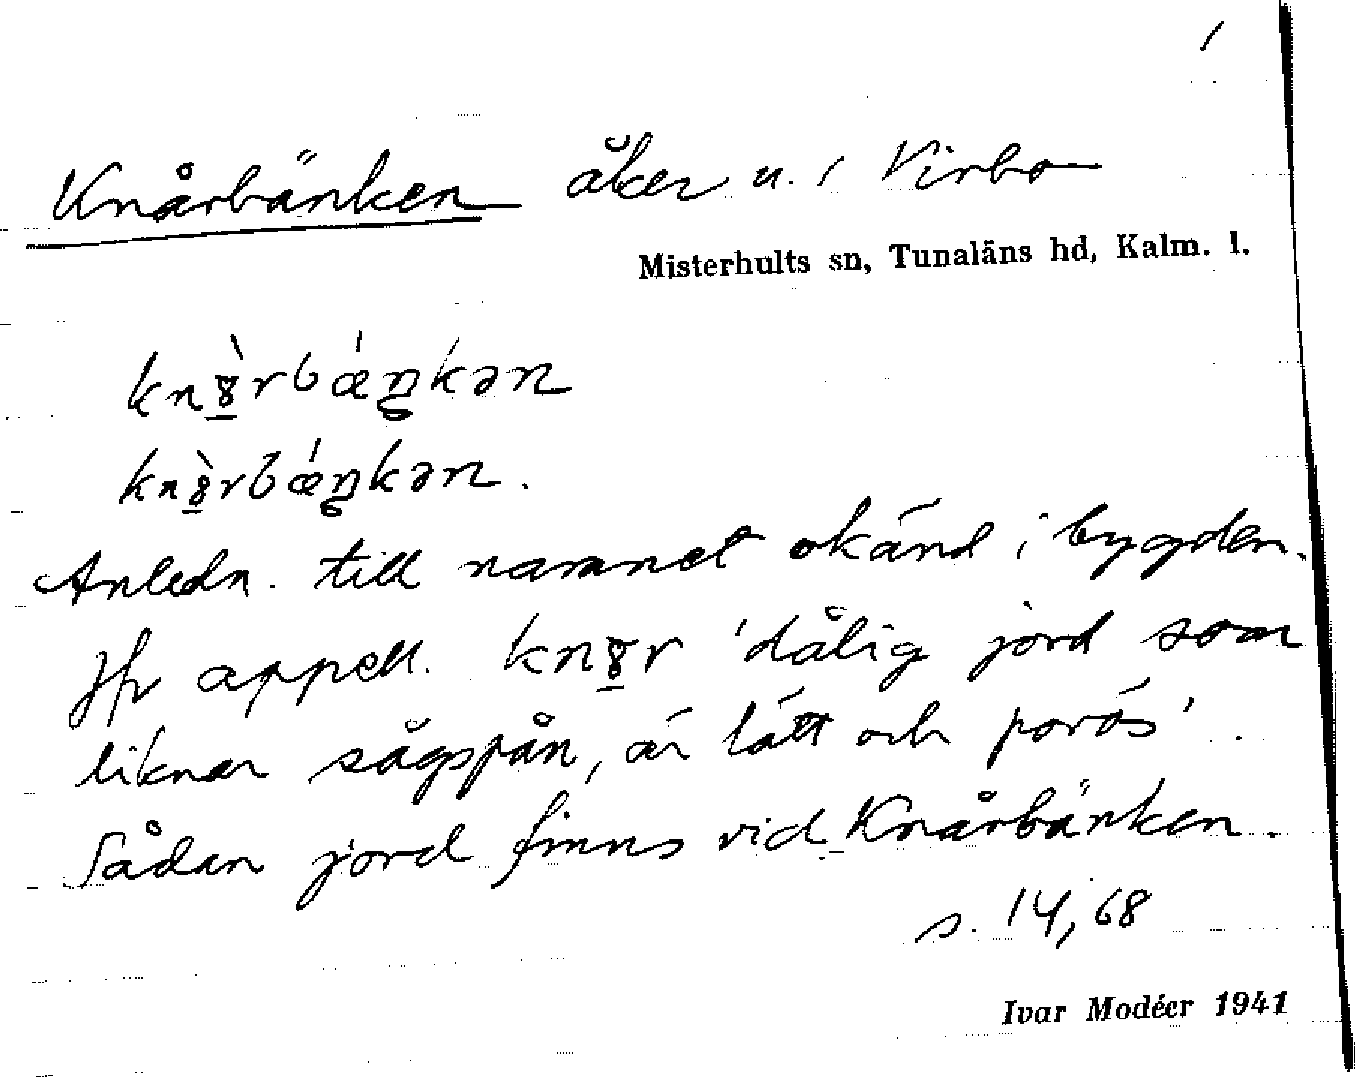 /
Knårbänken åker u. i Virbo
Misterhults sn, Tunaläns hd, Kalm. l.
kn8̲̀rbǽŋkən
kn8̲̀rbǽŋkən.
Anledn. till namnet okänd i bygden.
Jfr appell. kn8̲r 'dålig jord som
liknar sågspån, är lätt och porös'.
Sådan jord finns vid Knårbänken.
s. 14, 68
Ivar Modéer 1941